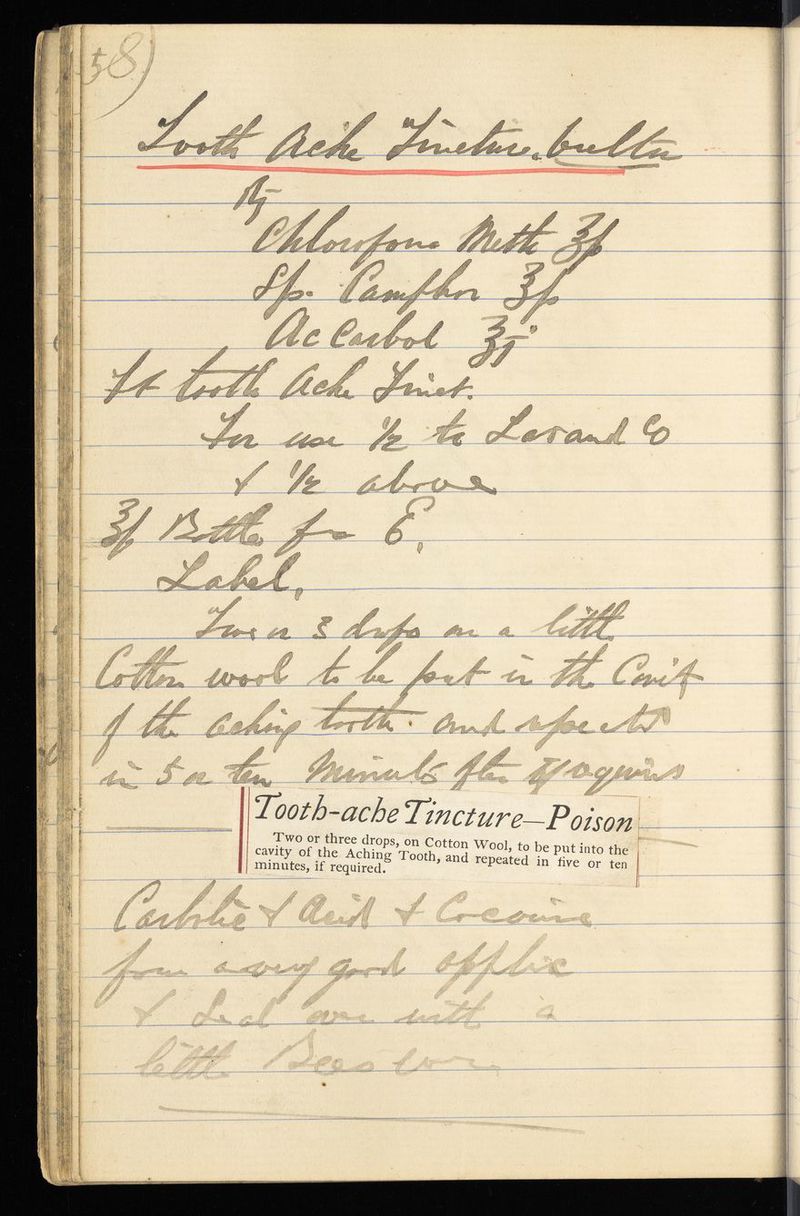 58)
Tooth Ache Tincture.
℞
Chloroform Meth ʒ
Sp. Camphor ʒ
Ac Carbol ʒj
Ft tooth Ache Tinct.
For use ½ to and Co
& ½ above
Bottle for E.
Label,
Two or 3 drops on a little
Cotton wool to be put in the Cavit
of the aching tooth. and repeated
in 5 or ten Minuts
Tooth-ache Tincture—Poison
Two or three drops, on Cotton Wool, to be put into the
cavity of the Aching Tooth, and repeated in five or ten
minutes, if required.
Carbolic & Acid & Cocaine
form a very good applic
& Seal over with a
little Bees wax